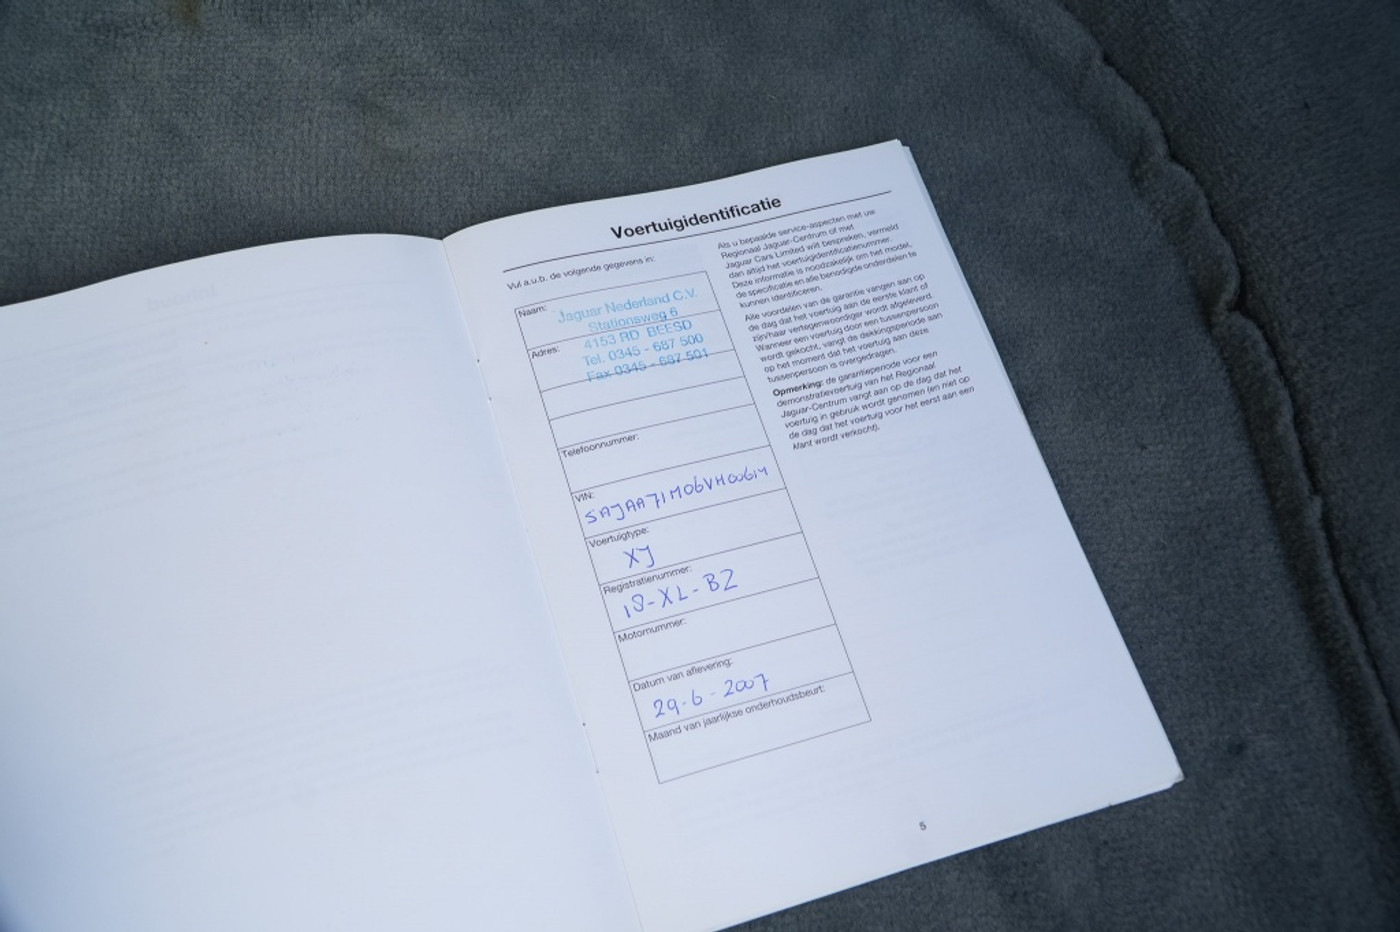 Voertuigidentificatie
Vul a.u.b. de volgende gegevens in:
Naam:
Jaguar Nederland C.V.
Stationsweg 6
Adres:
4153 RD BEESD
Tel. 0345 - 687 500
Fax 0345 - 687 501
Telefoonnummer:
VIN:
SAJAA71M06VH00614
Voertuigtype:
XJ
Registratienummer:
18-XL-BZ
Motornummer:
Datum van aflevering:
29-6-2007
Maand van jaarlijkse onderhoudsbeurt:
Als u bepaalde service-aspecten met uw
Regionaal Jaguar-Centrum of met
Jaguar Cars Limited wilt bespreken, vermeld
dan altijd het voertuigidentificatienummer.
Deze informatie is noodzakelijk om het model,
de specificatie en alle benodigde onderdelen te
kunnen identificeren.
Alle voordelen van de garantie vangen aan op
de dag dat het voertuig aan de eerste klant of
zijn/haar vertegenwoordiger wordt afgeleverd.
Wanneer een voertuig door een tussenpersoon
wordt gekocht, vangt de dekkingsperiode aan
op het moment dat het voertuig aan deze
tussenpersoon is overgedragen.
Opmerking: de garantieperiode voor een
demonstratievoertuig van het Regionaal
Jaguar-Centrum vangt aan op de dag dat het
voertuig in gebruik wordt genomen (en niet op
de dag dat het voertuig voor het eerst aan een
klant wordt verkocht).
5